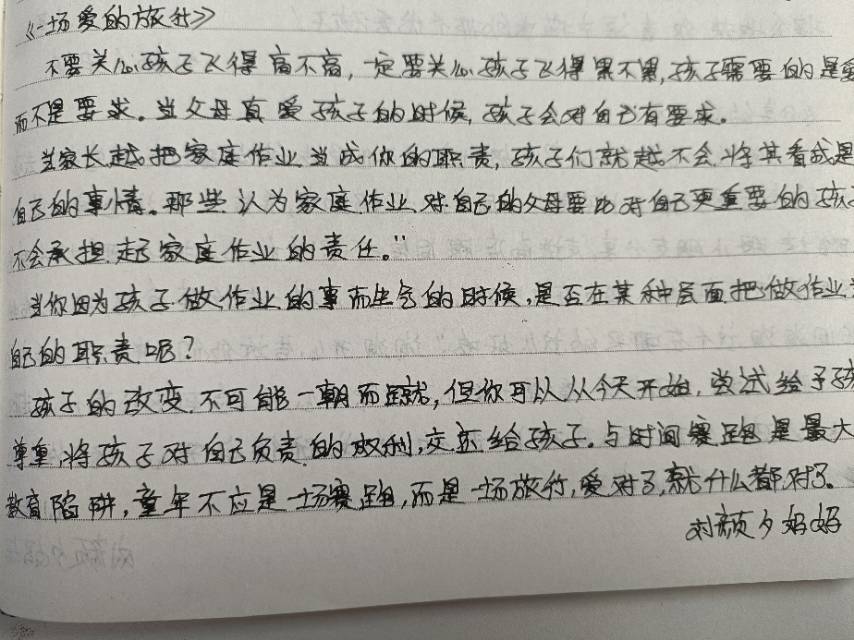 《一场爱的旅行》
不要关心孩子飞得高不高，一定要关心孩子飞得累不累，孩子需要的是爱
而不是要求。当父母真爱孩子的时候，孩子会对自己有要求。
当家长越把家庭作业当成你的职责，孩子们就越不会将其看成是
自己的事情。那些认为家庭作业对自己的父母要比对自己更重要的孩子
不会承担起家庭作业的责任。”
当你因为孩子做作业的事而生气的时候，是否在某种层面把做作业当
自己的职责呢？
孩子的改变不可能一朝而就，但你可以从今天开始，尝试给予孩
尊重，将孩子对自己负责的权利，交还给孩子。与时间赛跑是最大
教育陷阱，童年不应是一场赛跑，而是一场旅行，爱对了，就什么都对了。
刘颜夕妈妈